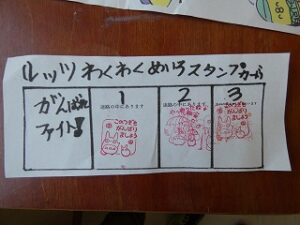 ルッツ わくわく めいろ スタンプカード
がんばれ
ファイト!
1
迷路の中にあります
このつぎも
がんばり
ましょう
2
迷路の中にあります
3
このつぎも
がんばり
ましょう